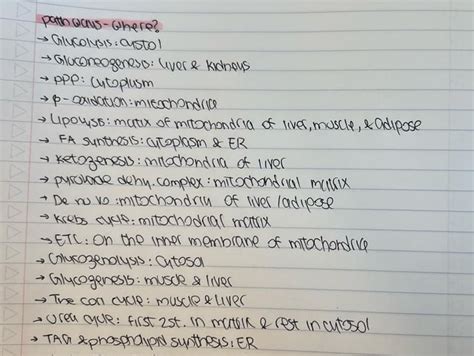 pathways-where?
→ Glycolysis: cystol
→ Gluconeogenesis: liver & kidneys
→ PPP: cytoplasm
→ β-oxidation: mitochondria
→ Lipolysis: matix of mitochondria of liver, muscle, & adipose
→ FA synthesis: cytoplasm & ER
→ Ketogenesis: mitochondria of liver
→ pyruvate dehy. complex: mitochondrial matrix
→ De novo: mitochondria of liver/adipose
→ Krebs cycle: mitochodrial matrix
→ ETC: on the inner membrane of mitochondria
→ Glycogenolysis: cytosol
→ Glycogenesis: muscle & liver
→ The cori cycle: muscle & liver
→ Urea cycle: first 2st. in matrix & rest in cytosol
→ TAG & phospholipid synthesis: ER